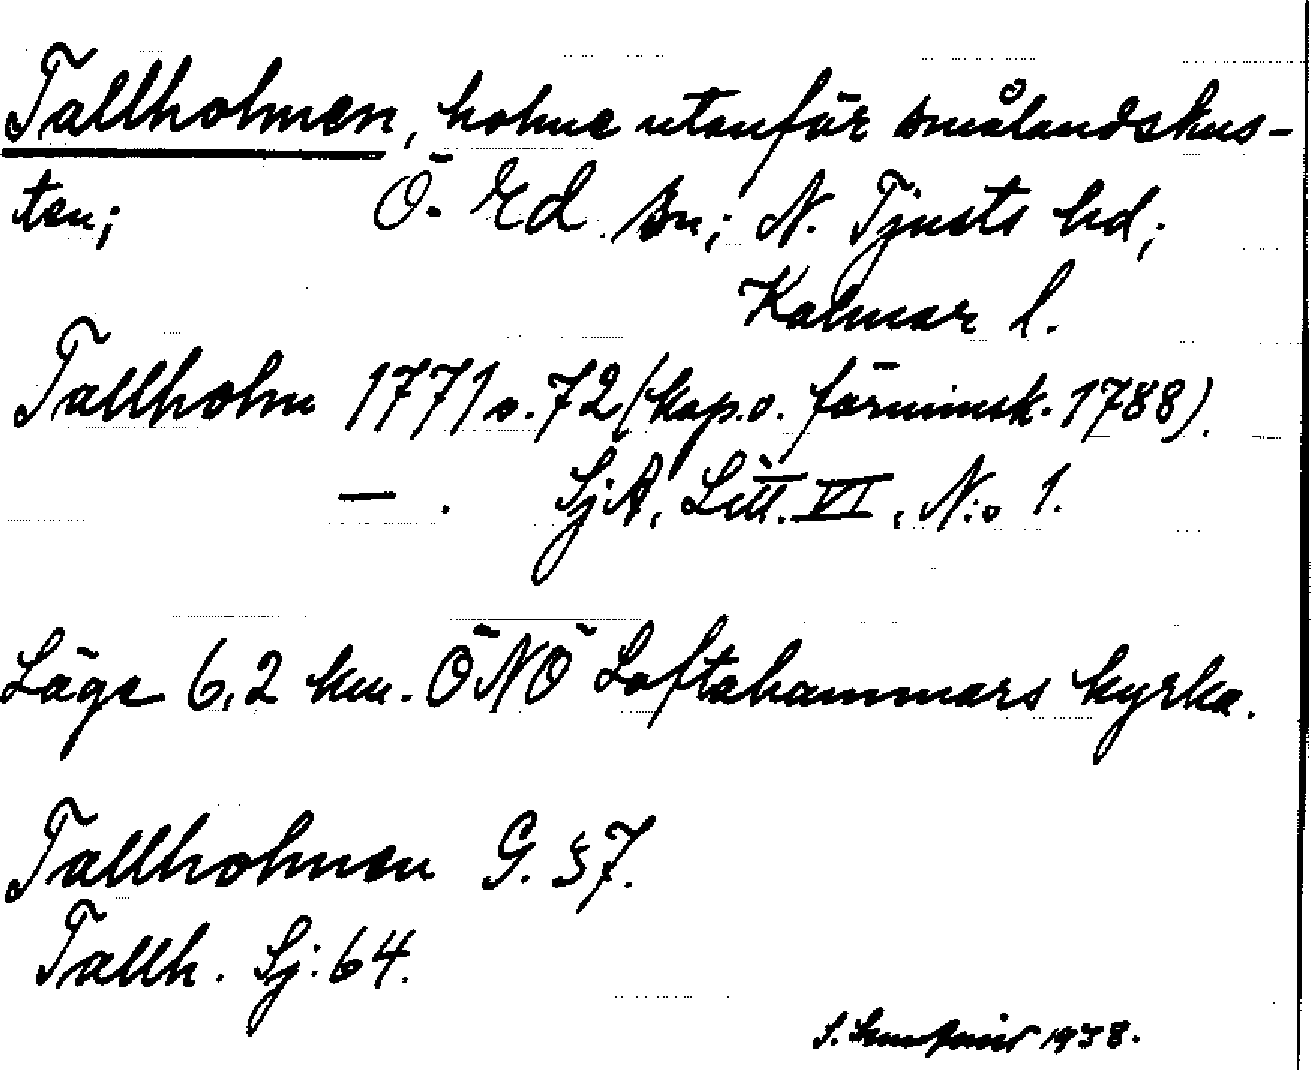 Tallholmen, holme utanför smålandskus-
ten; Ö. Ed sn; N. Tjusts hd;
Kalmar l.
Tallholm 1771 o. 72 (kop. o. förminsk. 1788).
— . SjA, Litt. VI, N:o 1.
Läge 6,2 km. ÖNÖ Loftahammars kyrka.
Tallholmen G. 57.
Tallh. Sj: 64.
S. 1938.